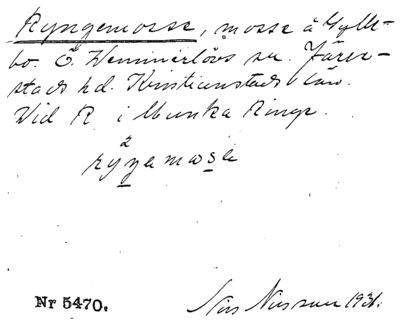 Ryngemosse, mosse å Gylle-
bo. Ö. Vemmerlövs sn. Järre-
stads hd. Kristianstads län.
Vid R. i Munka Ringe.
2
ryŋemosa
Nr 5470.
Nils Nilsson 1931.